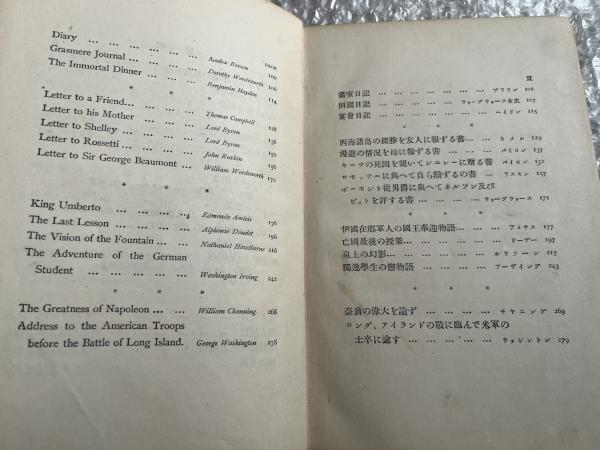 PAGE
Diary ... ... ... ... ... Andox Brown 100
Grasmere Journal ... ... ... Dorothy Wordsworth 106
The Immortal Dinner ... ... ... Benjamin Haydon 114
* * *
Letter to a Friend... ... ... Thomas Campbell 128
Letter to his Mother ... ... Lord Byron 136
Letter to Shelley ... ... ... Lord Byron 150
Letter to Rossetti ... ... ... John Ruskin 156
Letter to Sir George Beaumont ... William Wordsworth 170
* * *
King Umberto ... ... ... ... Edmondo Amicis 176
The Last Lesson ... ... ... Alphonse Daudet 196
The Vision of the Fountain ... Nathaniel Hawthorne 206
The Adventure of the German
Student ... ... ... ... Washington Irving 242
* * *
The Greatness of Napoleon ... ... William Channing 268
Address to the American Troops
before the Battle of Long Island. George Washington 278
頁
畫室日記… … … … … … … ブラウン 101
田園日記… … … … … ウォーヅウォース女史 107
宴會日記… … … … … … … ヘイドン 115
* * *
西海諸島の探勝を友人に報ずる書… … … カメル 129
漫遊の情況を母に報ずる書… … … … バイロン 137
キーツの死因を聞いてシエレーに贈る書… … バイロン 151
ロセッチーに與へて自ら辯ずるの書… … ラスキン 157
ボーモント從男爵に與へてネルソン及び
ピットを評する書 … … … ウォーヅウォース 171
* * *
伊國在郷軍人の國王奉迎物語… … … アミサス 177
亡國最後の授業… … … … … … ドーデー 197
泉上の幻影… … … … … … ホウソーン 207
獨逸學生の戀物語… … … … … アーヴィング 243
* * *
奈翁の偉大を論ず … … … … チヤニング 269
ロング、アイランドの戰に臨んで米軍の
士卒に諭す … … … … … ワシントン 279